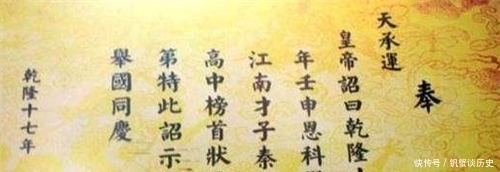 奉
天承運
皇帝詔曰乾隆
年壬申恩科
江南才子秦
高中榜首狀
第特此詔示
舉國同慶
乾隆十七年
快传号／钒蟹谈历史